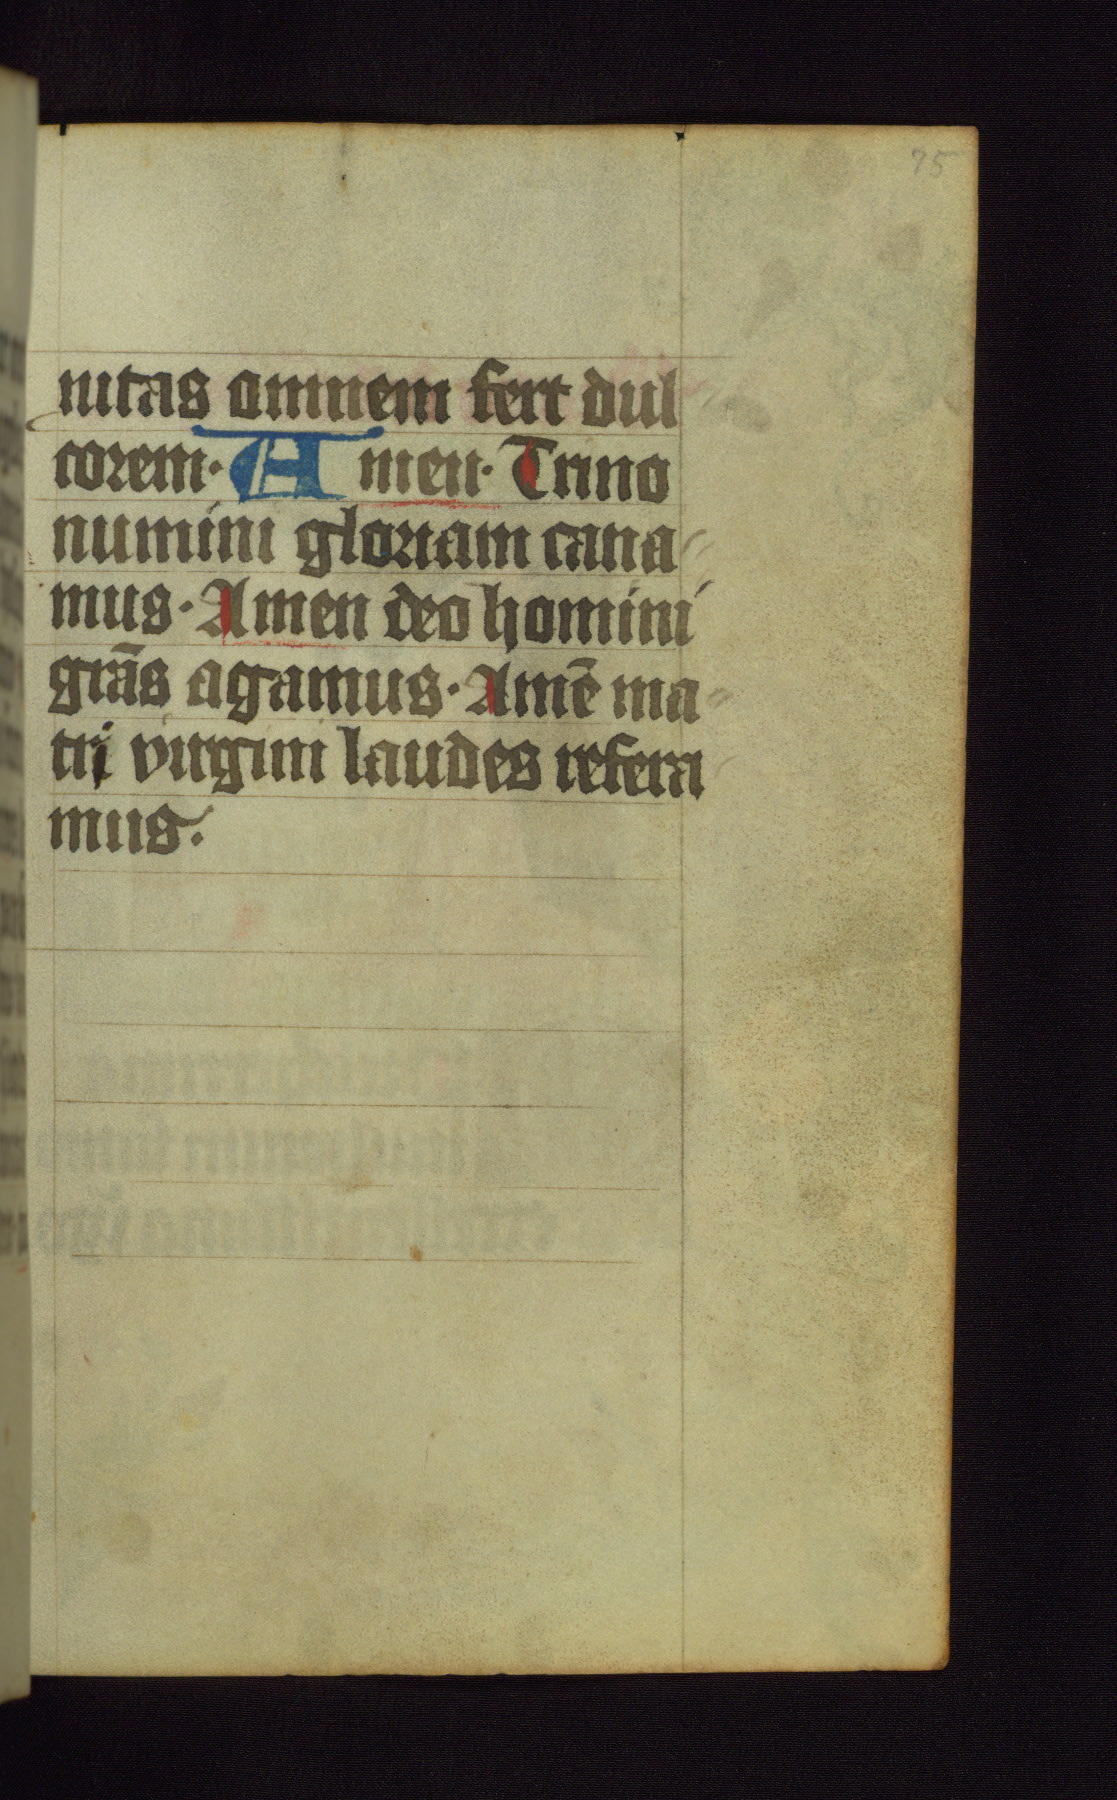 75
nitas omnem fert dul
corem· Amen· Trino
numini gloriam cana
mus· Amen deo homini
grãs agamus· Amẽ ma
tri virgini laudes refera
mus·